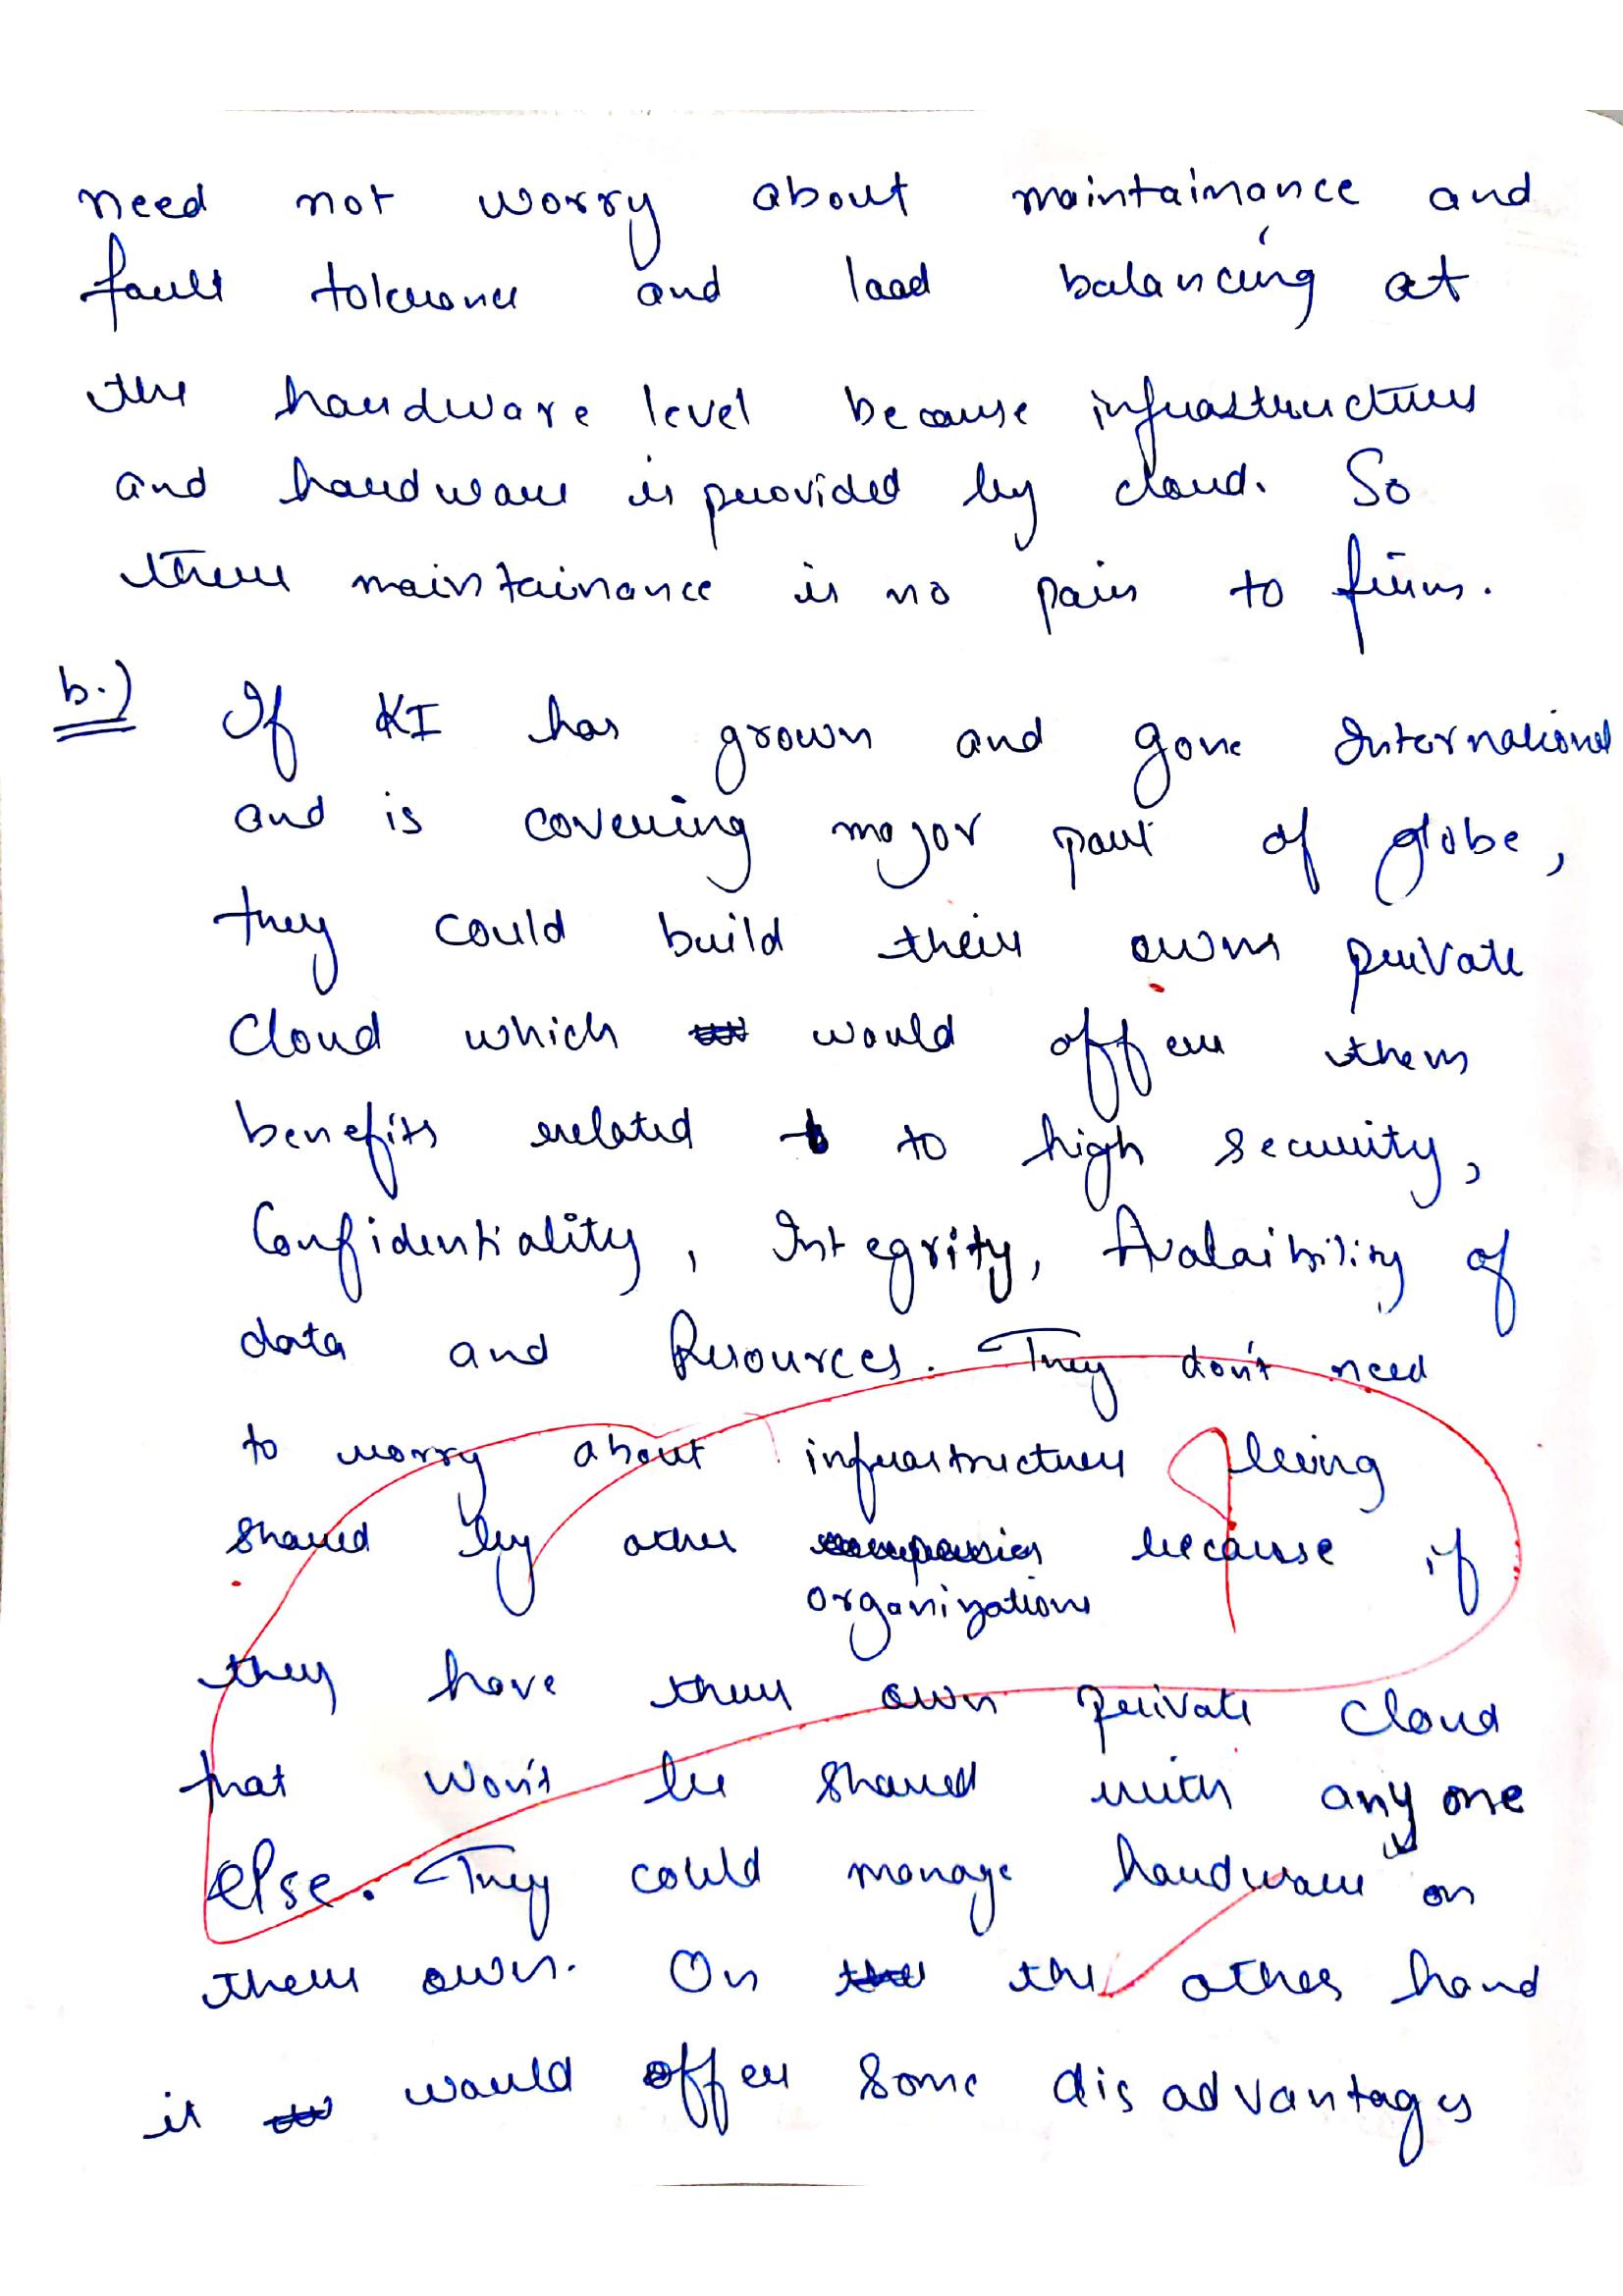 need not worry about maintainance and
fault tolerance and load balancing at
the hardware level because infrastructures
and hardware is provided by cloud. So
there maintainance is no pain to firms.
b.) If KI has grown and gone International
and is covering major part of globe,
they could build their own private
Cloud which would offer them
benefits related to high security,
Confidentiality, Integrity, Avalaibility of
data and Resources. They don't need
to worry about infrastructure being
shared by other because if
organizations
they have their own private cloud
that won't be shared with anyone
else. They could manage hardware on
there own. On the other hand
it would offer some disadvantages